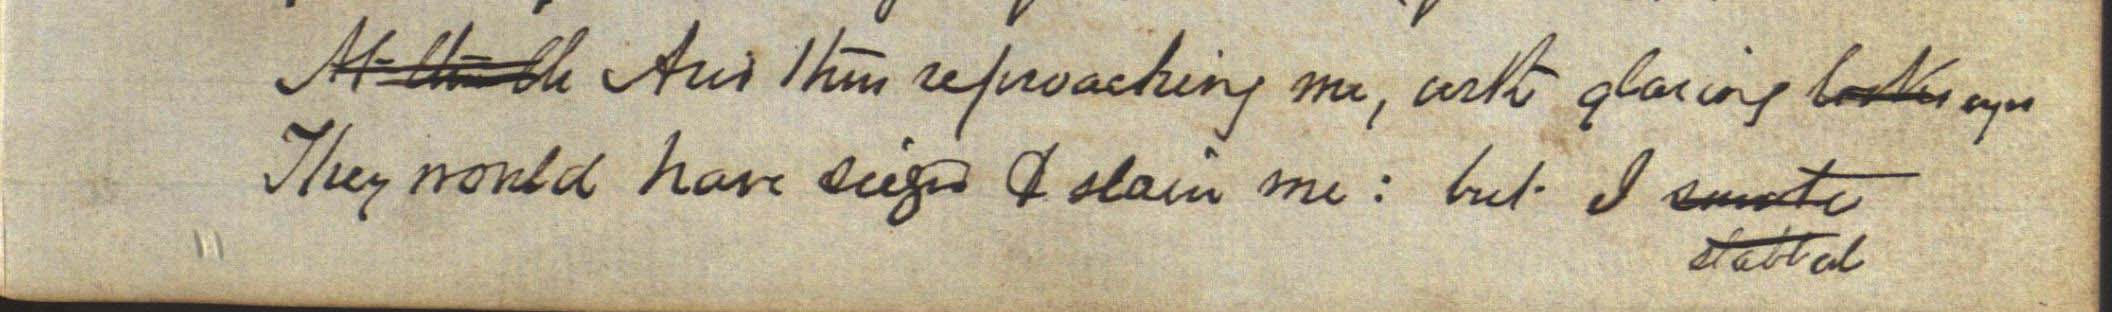 And thus reproaching me, with glaring looks eyes
They would have seized & slain me: but I smote
stabbed